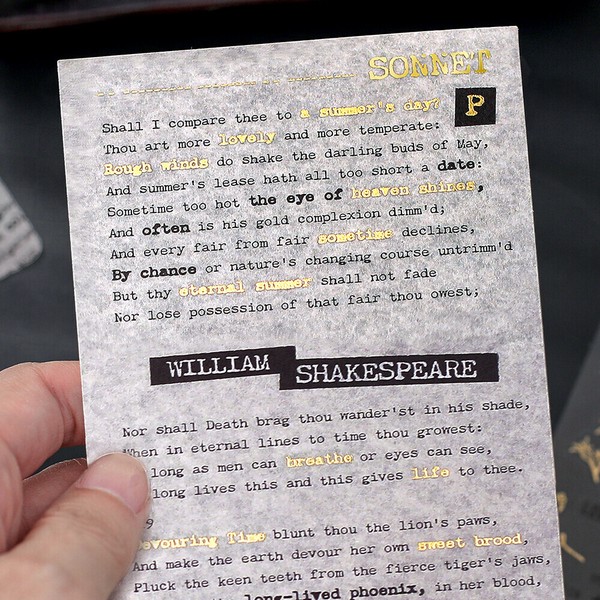 SONNET
P
Shall I compare thee to a summer's day?
Thou art more lovely and more temperate:
Rough winds do shake the darling buds of May,
And summer's lease hath all too short a date:
Sometime too hot the eye of heaven shines,
And often is his gold complexion dimm'd;
And every fair from fair sometime declines,
By chance or nature's changing course untrimm'd
But thy eternal summer shall not fade
Nor lose possession of that fair thou owest;
WILLIAM SHAKESPEARE
Nor shall Death brag thou wander'st in his shade,
When in eternal lines to time thou growest:
long as men can breathe or eyes can see,
long lives this and this gives life to thee.
9
Devouring Time blunt thou the lion's paws,
And make the earth devour her own sweet brood,
Pluck the keen teeth from the fierce tiger's jaws,
long-lived phoenix, in her blood,